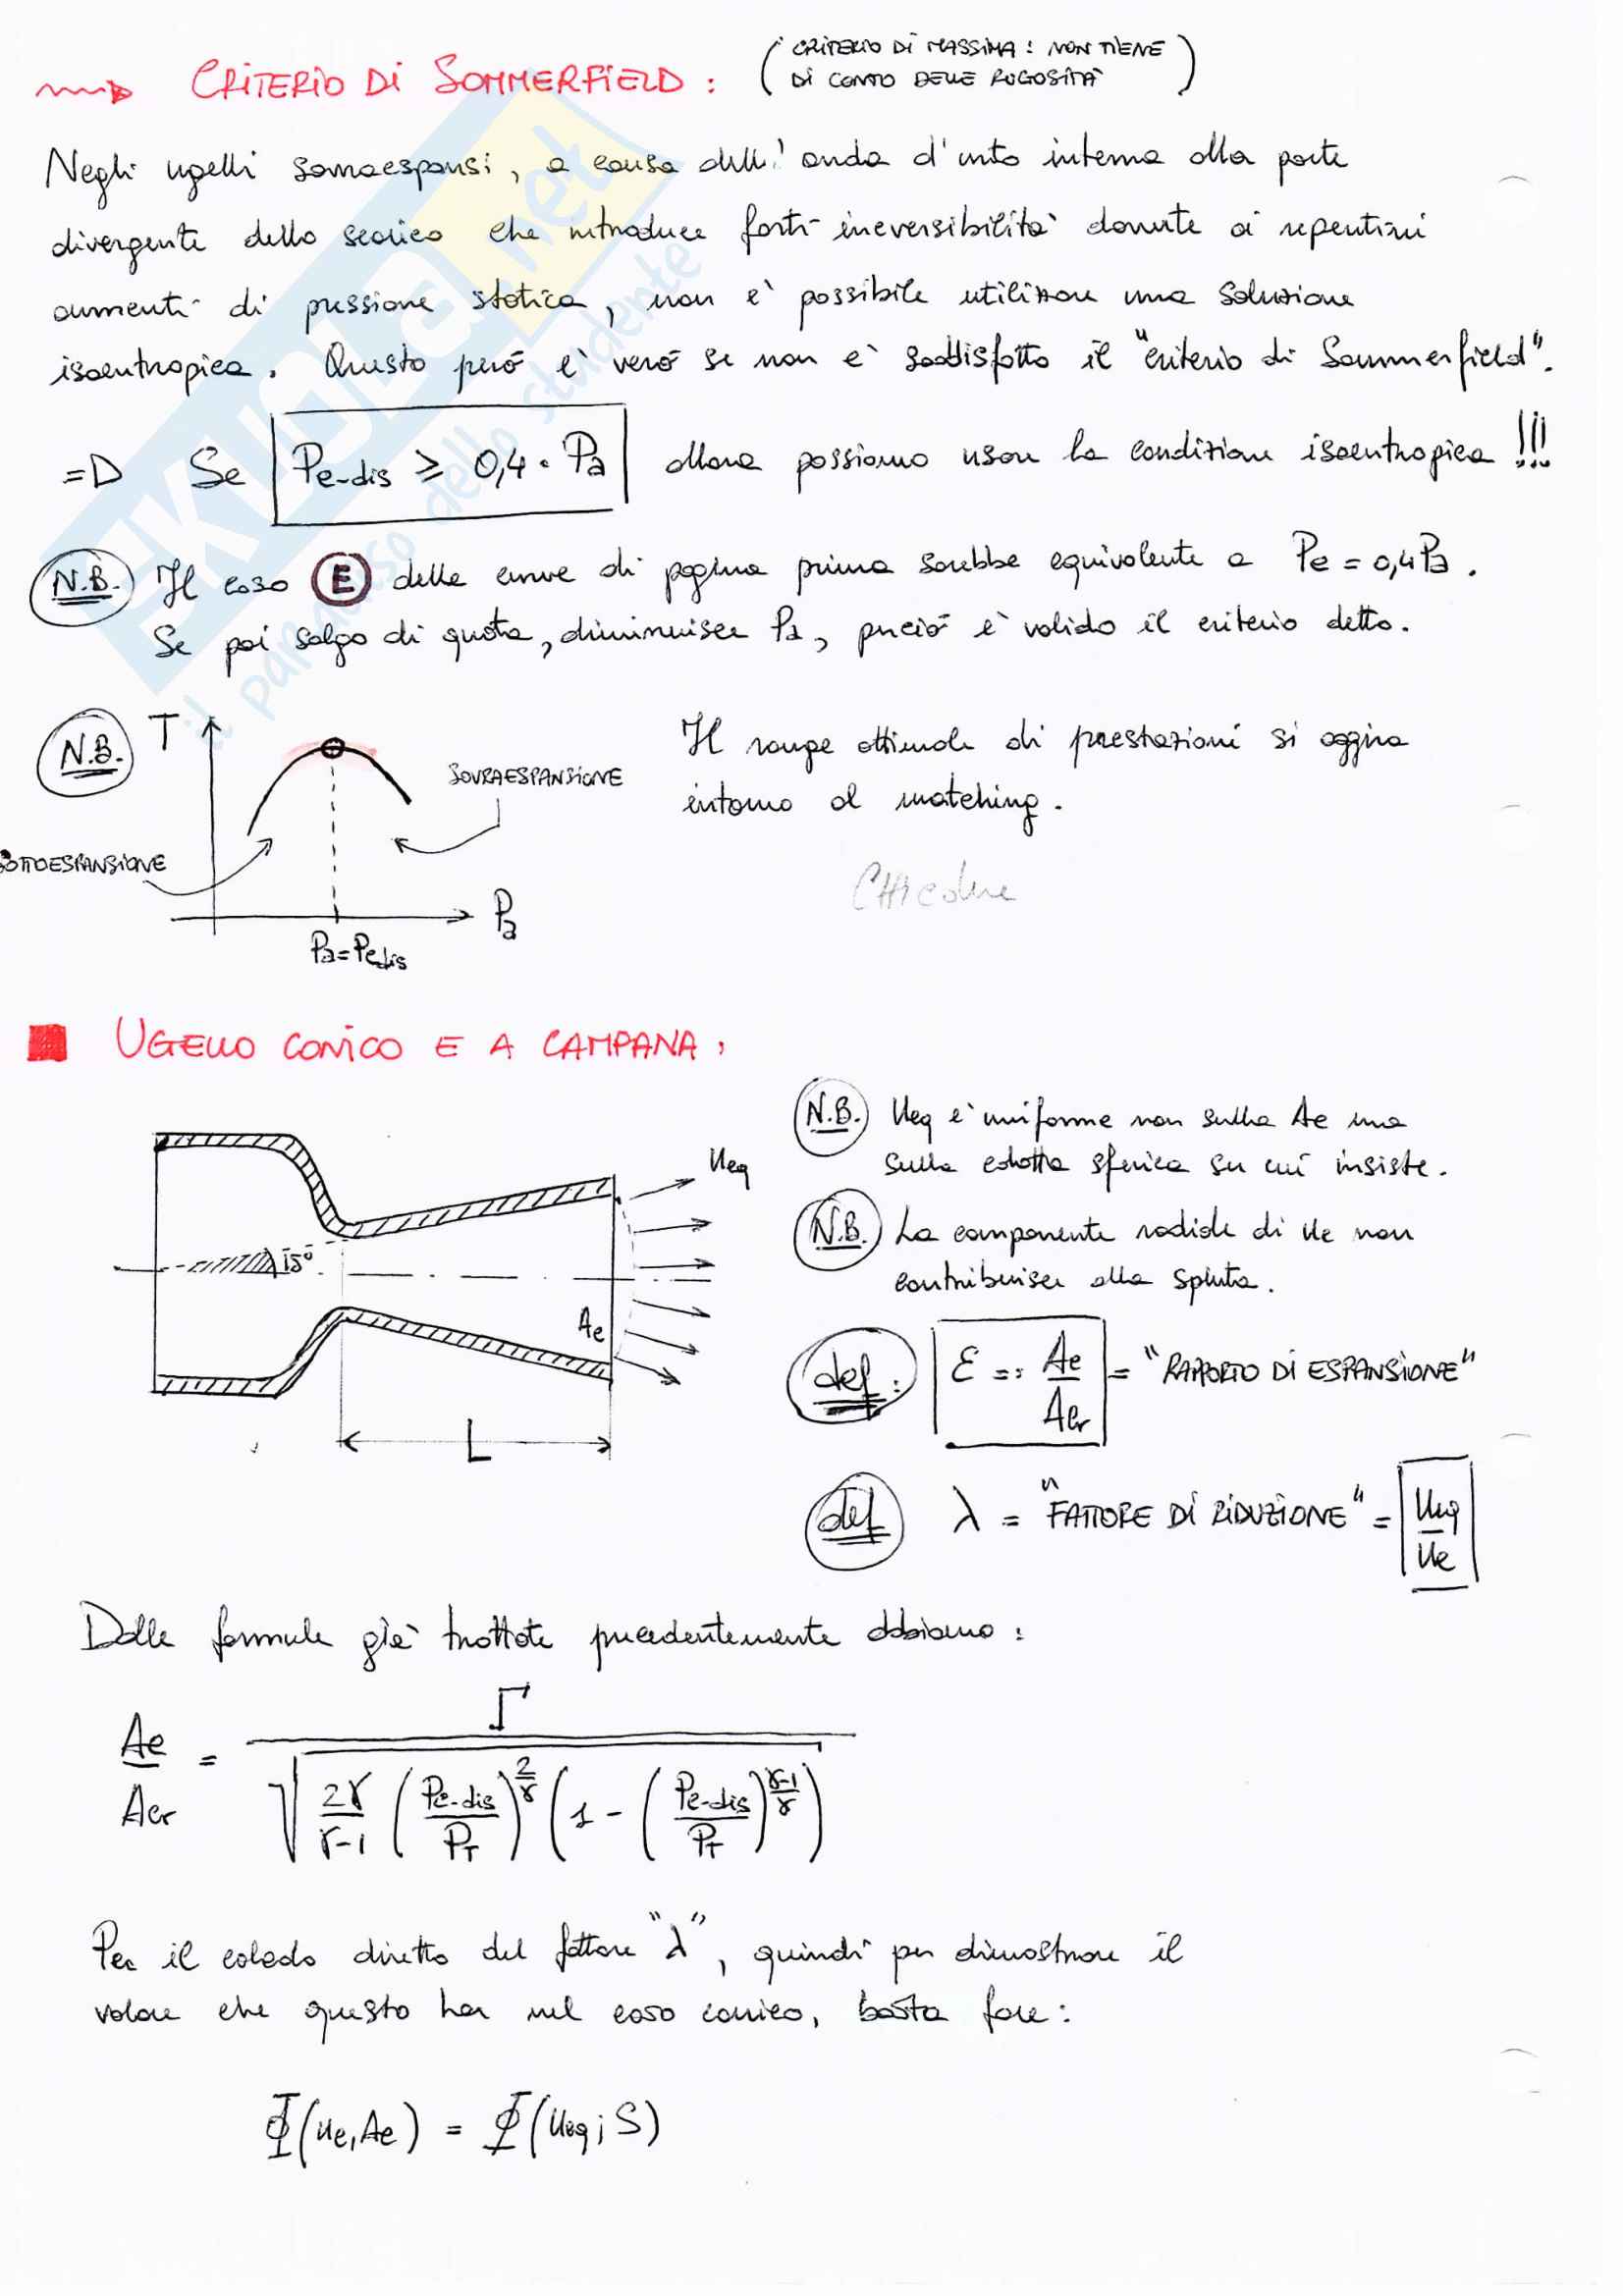 CRITERIO DI SOMMERFIELD : ( CRITERIO DI MASSIMA : NON TIENE
DI CONTO DELLE RUGOSITÀ )
Negli ugelli sovraespansi, a causa dell' onda d'urto interna alla parte
divergente dello scarico che introduce forti irreversibilità dovute ai repentini
aumenti di pressione statica, non è possibile utilizzare una soluzione
isoentropica. Questo però è vero se non è soddisfatto il "criterio di Sommerfield".
=D Se Pe-dis ≥ 0,4 · Pa allora possiamo usare la condizione isoentropica !!!
N.B. Il caso E delle curve di pagina prima sarebbe equivalente a Pe = 0,4 Pa.
Se poi salgo di quota, diminuisce Pa, perciò è valido il criterio detto.
N.B. T
SOVRAESPANSIONE
SOTTOESPANSIONE
Pa
Pa=Pe dis
Il range ottimale di prestazioni si aggira
intorno al matching.
UGELLO CONICO E A CAMPANA :
Ueq
15°
Ae
L
N.B. Ueq è uniforme non sulla Ae ma
sulla calotta sferica su cui insiste.
N.B. La componente radiale di Ue non
contribuisce alla spinta.
def: ε =: Ae/Acr = "RAPPORTO DI ESPANSIONE"
def λ = "FATTORE DI RIDUZIONE" = Ueq/Ue
Dalle formule già trattate precedentemente abbiamo :
Ae/Acr = Γ / √( 2γ/(γ-1) (Pe-dis/PT)^(2/γ) (1 - (Pe-dis/PT)^((γ-1)/γ)) )
Per il calcolo diretto del fattore "λ", quindi per dimostrare il
valore che questo ha nel caso conico, basta fare :
Φ(Ue, Ae) = Φ(Ueq ; S)
il paradiso dello studente